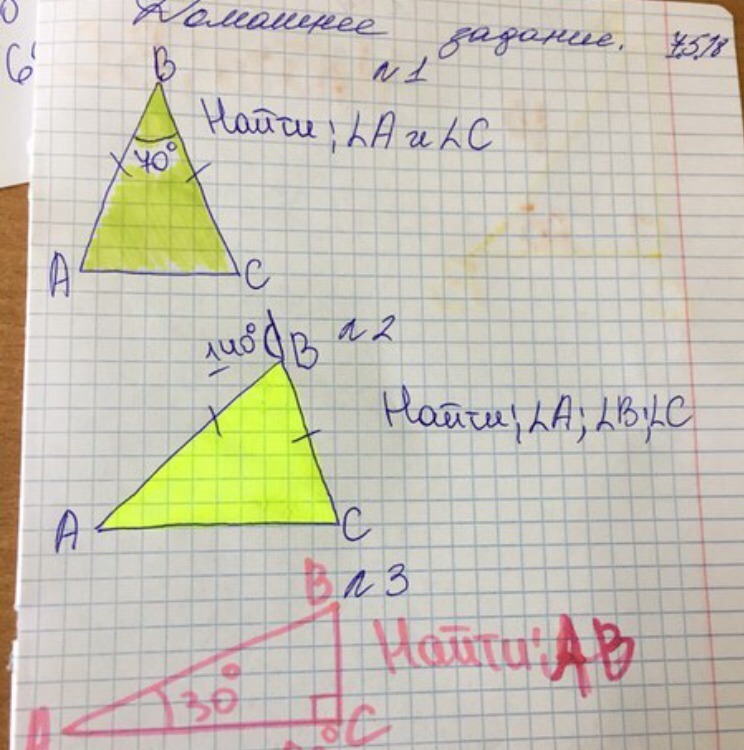 Домашнее задание. 7.5.18
n1
B
Найти; ∠A и ∠C
70°
A C
140° B n2
Найти; ∠A; ∠B; ∠C
A C
B n3
Найти: AB
30°
A C